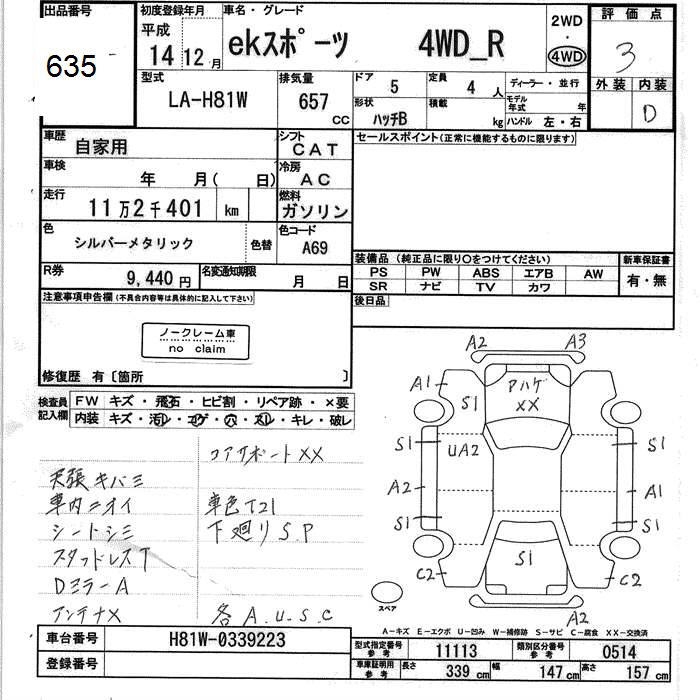 出品番号
635
初度登録年月
平成
14 12 月
車名・グレード
ekスポーツ 4WD_R
2WD
・
4WD
評価点
3
外装 内装
D
型式
LA-H81W
排気量
657 CC
ドア 5
定員 4 人
ディーラー・並行
形状 ハッチB
積載 kg
モデル年式 年
ハンドル 左・右
車歴 自家用
シフト CAT
セールスポイント(正常に機能するものに限ります)
車検 年 月( 日)
冷房 AC
走行 11万2千401 km
燃料 ガソリン
色 シルバーメタリック 色替
色コード A69
装備品 (純正品に限り○をつけてください)
新車保証書
PS PW ABS エアB AW
有・無
SR ナビ TV カワ
R券 9,440円
名変通知期限 月 日
後日品
注意事項申告欄(不具合内容等は具体的に記入して下さい)
ノークレーム車
no claim
修復歴 有〔箇所 〕
検査員記入欄
FW キズ・飛石・ヒビ割・リペア跡・×要
内装 キズ・汚レ・コゲ・穴・スレ・キレ・破レ
コアサポートXX
天張キバミ
車内ニオイ
車色T21
シートシミ
下廻りS.P
スタッドレスT
DミラーA
アンテナX
各A.U.S.C
A2 A3
A1 S1
アハゲ
XX
S1 UA2 S1
A2 A1
S1 S1
S1
C2 C2
スペア
A2
A-キズ E-エクボ U-凹み W-補修跡 S-サビ C-腐食 XX-交換済
車台番号 H81W-0339223
登録番号
型式指定番号 参考 11113
類別区分番号 参考 0514
車庫証明用 参考 長さ 339 cm 幅 147 cm 高さ 157 cm